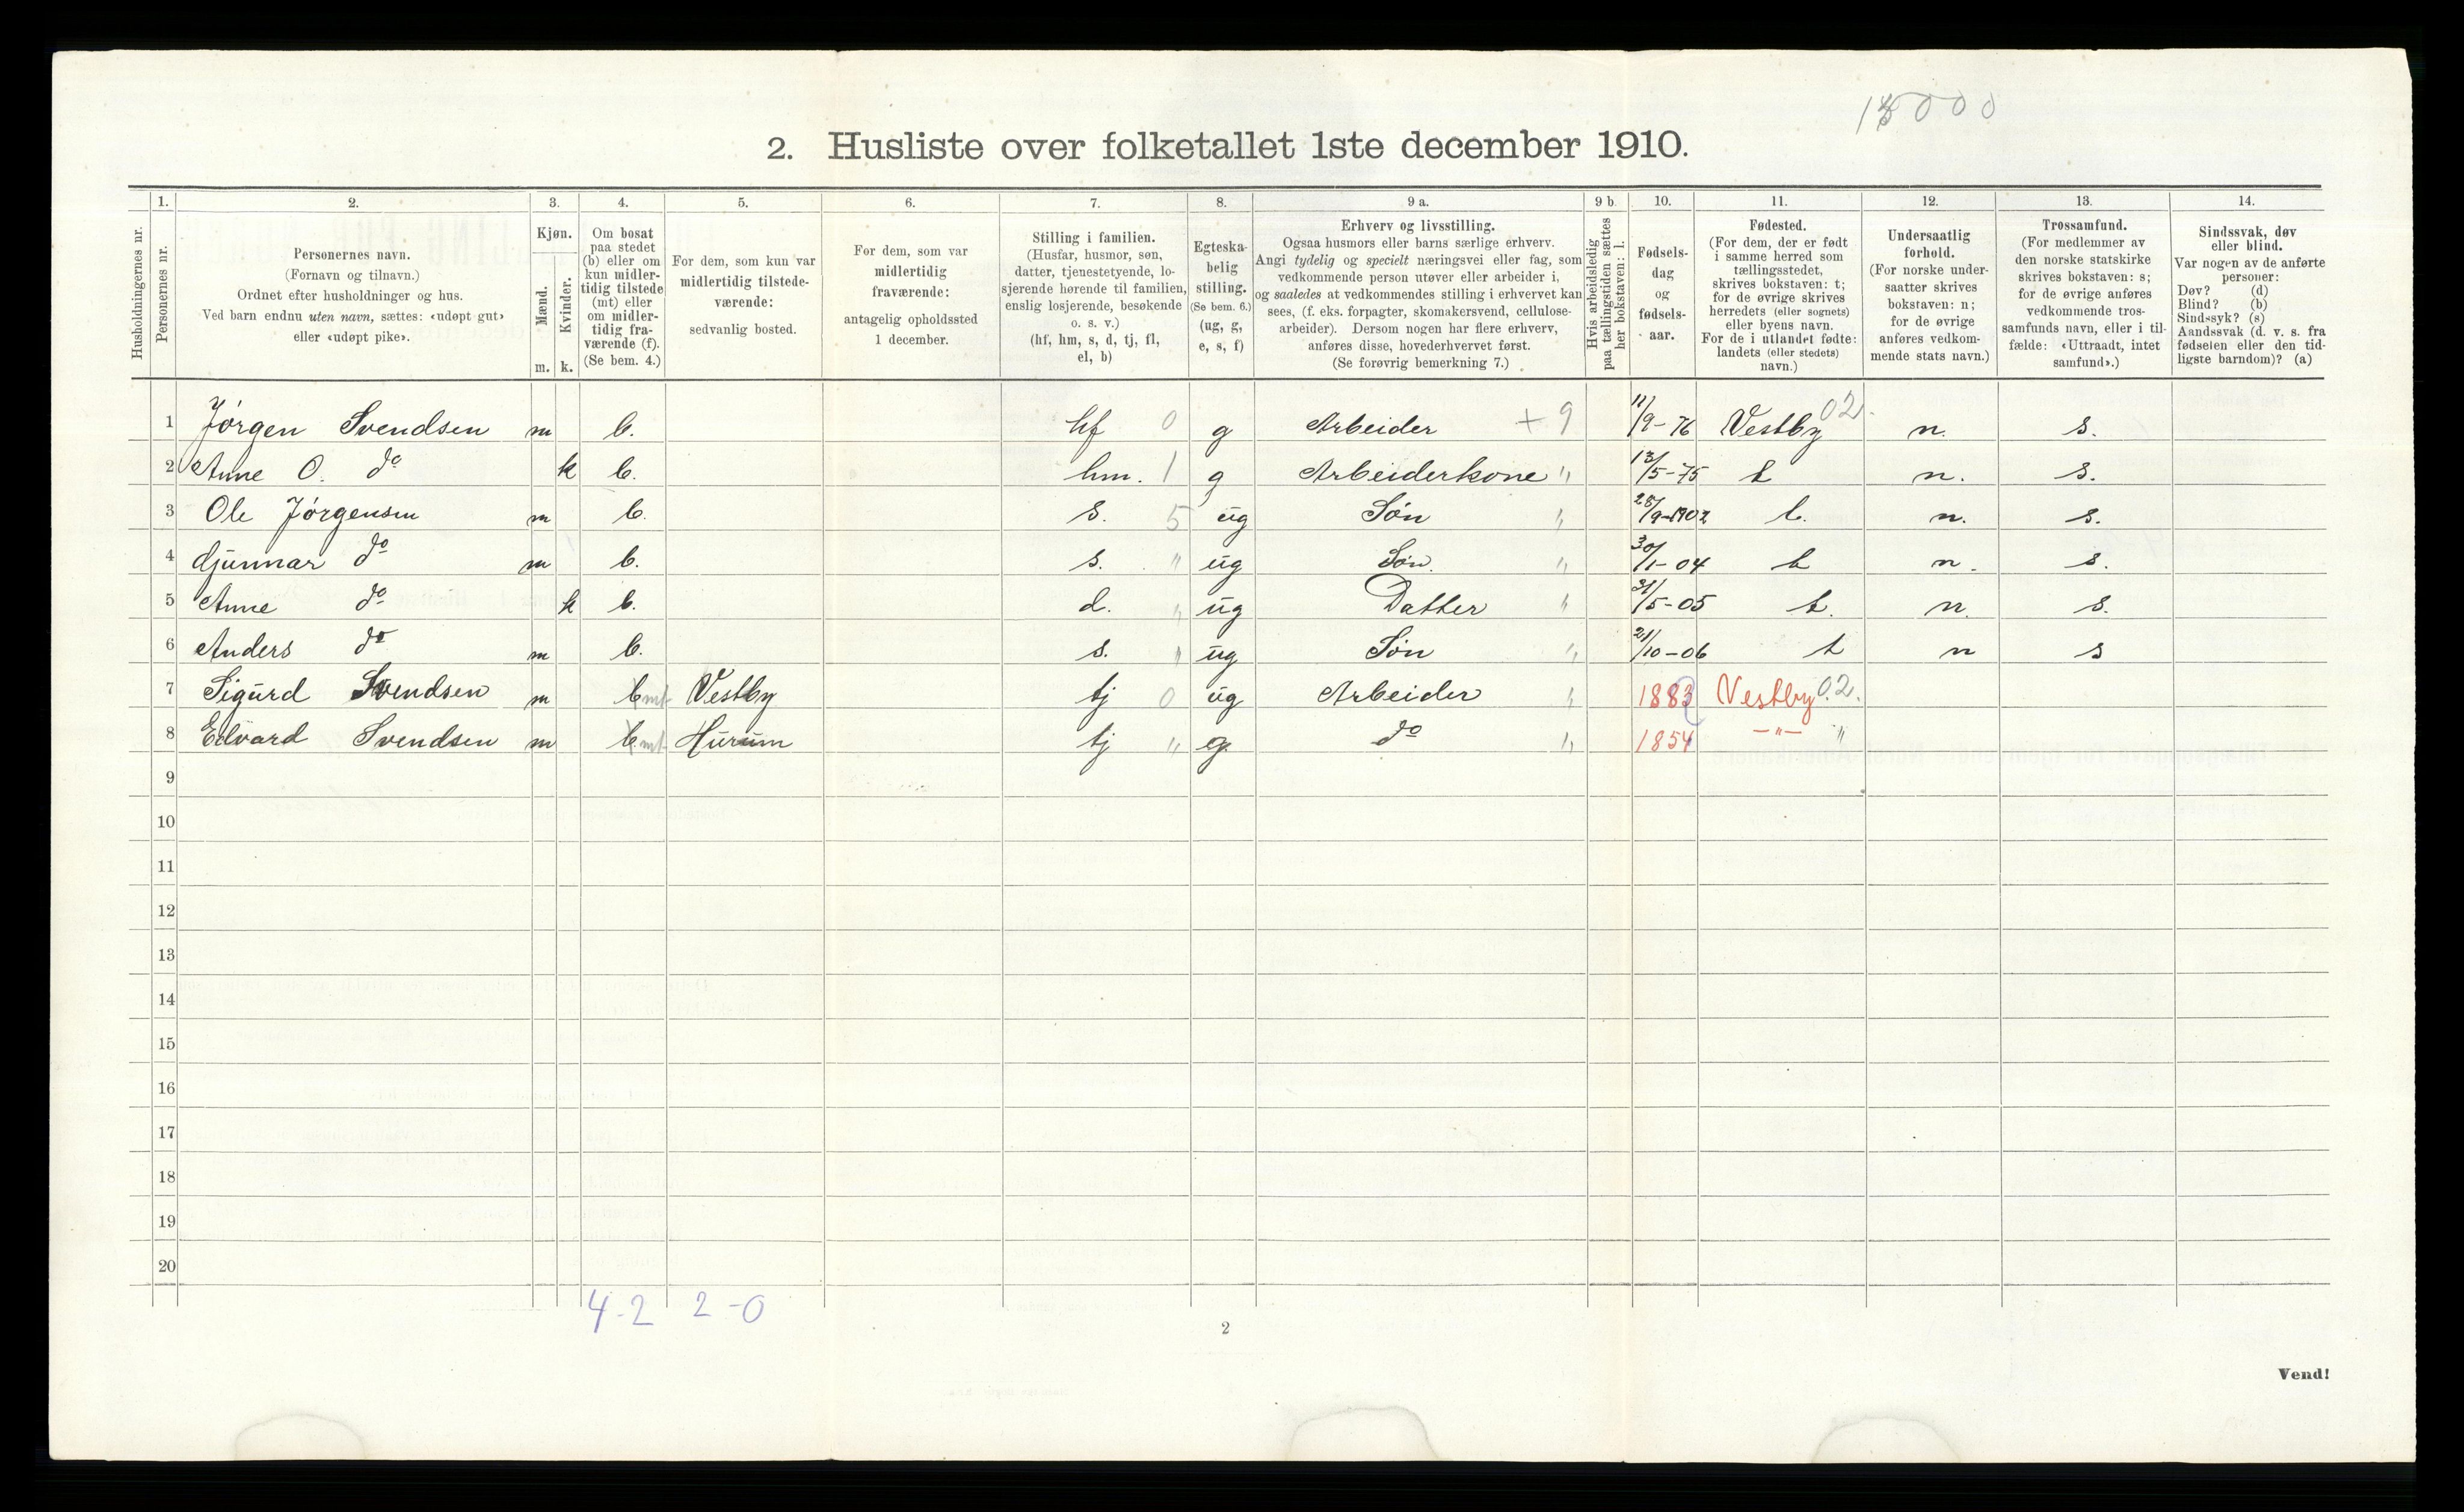 15000
2. Husliste over folketallet 1ste december 1910.
Husholdningernes nr.
1. Personernes nr.
2. Personernes navn.
(Fornavn og tilnavn.)
Ordnet efter husholdninger og hus.
Ved barn endnu uten navn, sættes: «udøpt gut»
eller «udøpt pike».
3. Kjøn.
Mænd. m.
Kvinder. k.
4. Om bosat
paa stedet
(b) eller om
kun midler-
tidig tilstede
(mt) eller
om midler-
tidig fra-
værende (f).
(Se bem. 4.)
5. For dem, som kun var
midlertidig tilstede-
værende:
sedvanlig bosted.
6. For dem, som var
midlertidig
fraværende:
antagelig opholdssted
1 december.
7. Stilling i familien.
(Husfar, husmor, søn,
datter, tjenestetyende, lo-
sjerende hørende til familien,
enslig losjerende, besøkende
o. s. v.)
(hf, hm, s, d, tj, fl,
el, b)
8. Egteska-
belig
stilling.
(Se bem. 6.)
(ug, g,
e, s, f)
9 a. Erhverv og livsstilling.
Ogsaa husmors eller barns særlige erhverv.
Angi tydelig og specielt næringsvei eller fag, som
vedkommende person utøver eller arbeider i,
og saaledes at vedkommendes stilling i erhvervet kan
sees, (f. eks. forpagter, skomakersvend, cellulose-
arbeider). Dersom nogen har flere erhverv,
anføres disse, hovederhvervet først.
(Se forøvrig bemerkning 7.)
9 b. Hvis arbeidsledig
paa tællingstiden sættes
her bokstaven: l.
10. Fødsels-
dag
og
fødsels-
aar.
11. Fødested.
(For dem, der er født
i samme herred som
tællingsstedet,
skrives bokstaven: t;
for de øvrige skrives
herredets (eller sognets)
eller byens navn.
For de i utlandet fødte:
landets (eller stedets)
navn.)
12. Undersaatlig
forhold.
(For norske under-
saatter skrives
bokstaven: n;
for de øvrige
anføres vedkom-
mende stats navn.)
13. Trossamfund.
(For medlemmer av
den norske statskirke
skrives bokstaven: s;
for de øvrige anføres
vedkommende tros-
samfunds navn, eller i til-
fælde: «Uttraadt, intet
samfund».)
14. Sindssvak, døv
eller blind.
Var nogen av de anførte
personer:
Døv? (d)
Blind? (b)
Sindssyk? (s)
Aandssvak (d. v. s. fra
fødselen eller den tid-
ligste barndom)? (a)
1 Jörgen Svendsen m b. hf 0 g Arbeider + 9 11/9-76 Vestby 02. n. s.
2 Anne O. do k b. hm. 1 g Arbeiderkone " 13/5-75 t n. s.
3 Ole Jörgensen m b. s. 5 ug Sön " 28/9-1902 t. n. s.
4 Gjunnar do m b. s. " ug Sön. " 30/1-04 t n. s.
5 Anne do k b. d. " ug Datter " 31/5-05 t. n. s.
6 Anders do m b. s. " ug Sön " 21/10-06 t n s
7 Sigurd Svendsen m b mt Vestby tj 0 ug Arbeider " 1883 Vestby 02.
8 Edvard Svendsen m b mt Hurum tj " g do " 1854 -"- "
9
10
11
12
13
14
15
16
17
18
19
20
4-2 2-0
2
Vend!